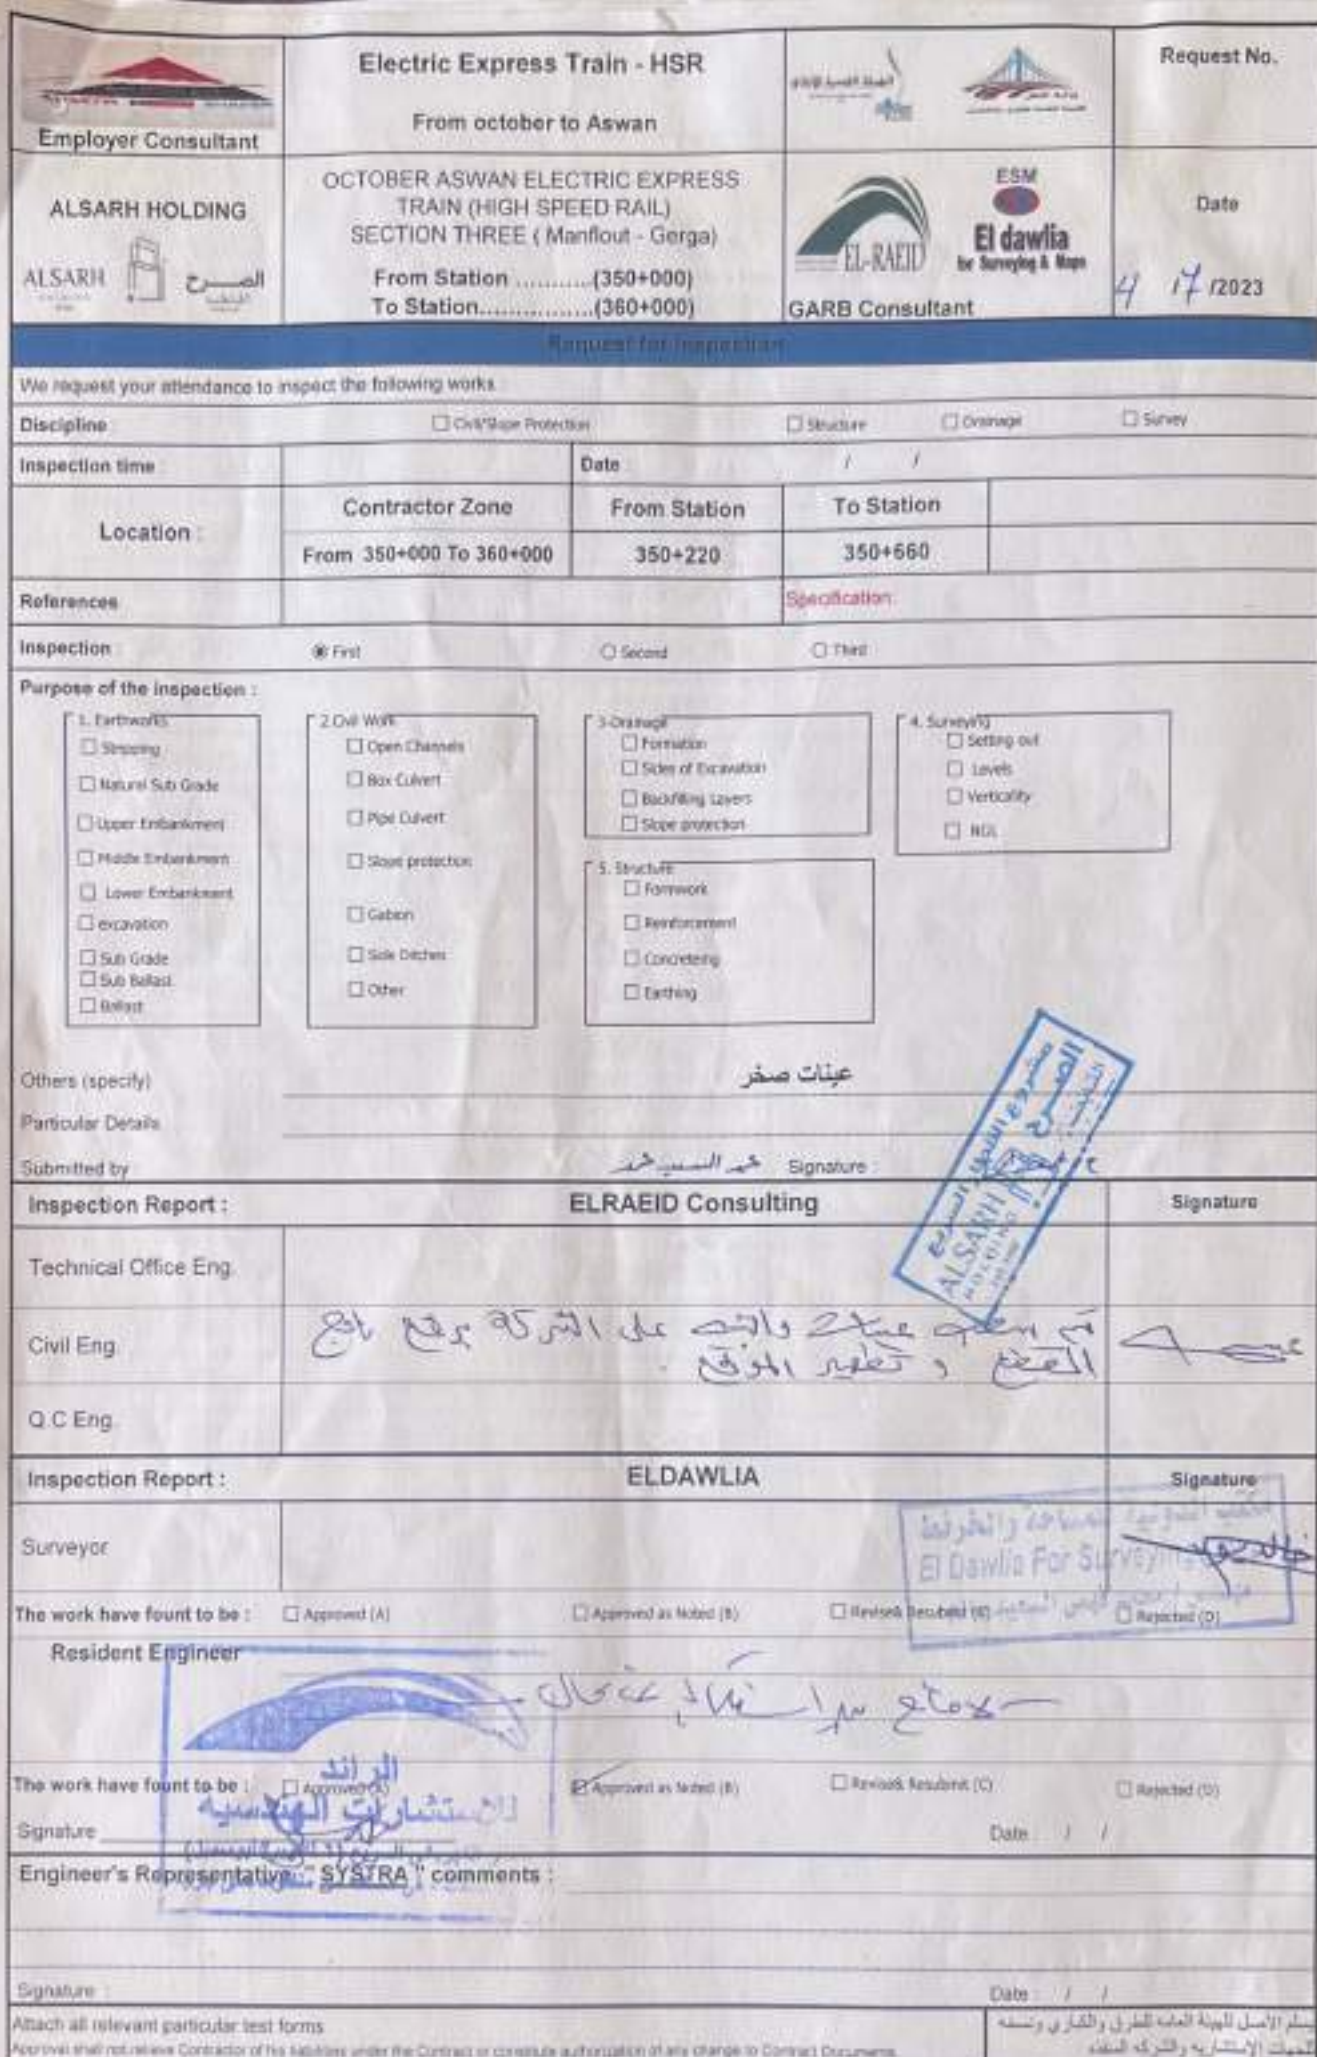 Electric Express Train - HSR
From october to Aswan
Request No.
Employer Consultant
ALSARH HOLDING
ALSARH
الصرح
OCTOBER ASWAN ELECTRIC EXPRESS
TRAIN (HIGH SPEED RAIL)
SECTION THREE ( Manflout - Gerga)
From Station ...........(350+000)
To Station.................(360+000)
EL-RAEID
ESM
El dawlia
for Surveying & Maps
GARB Consultant
Date
4 / 7 /2023
Request for Inspection
We request your attendance to inspect the following works
Discipline
☐ Civil/Slope Protection ☐ Structure ☐ Drainage ☐ Survey
Inspection time
Date / /
Location :
Contractor Zone From Station To Station
From 350+000 To 360+000 350+220 350+660
References
Specification:
Inspection :
◉ First ○ Second ○ Third
Purpose of the inspection :
1. Earthworks
☐ Stripping
☐ Natural Sub Grade
☐ Upper Embankment
☐ Middle Embankment
☐ Lower Embankment
☐ excavation
☐ Sub Grade
☐ Sub Ballast
☐ Ballast
2.Civil Work
☐ Open Channels
☐ Box Culvert
☐ Pipe Culvert
☐ Slope protection
☐ Gabion
☐ Side Ditches
☐ Other
3-Drainage
☐ Formation
☐ Sides of Excavation
☐ Backfilling Layers
☐ Slope protection
4. Surveying
☐ Setting out
☐ Levels
☐ Verticality
☐ NGL
5. Structure
☐ Formwork
☐ Reinforcement
☐ Concreteing
☐ Earthing
Others (specify)
عينات صخر
Particular Details
Submitted by
Signature :
مشروع القطار السريع
الصرح
ALSARH
HOLDING
Inspection Report :
ELRAEID Consulting
Signature
Technical Office Eng.
Civil Eng.
تم سحب عينات والتنبيه على الشركة برفع ناتج
القطع و تطهير الموقع .
Q.C Eng.
Inspection Report :
ELDAWLIA
Signature
Surveyor
El Dawlia For Surveying
The work have fount to be :
☐ Approved (A) ☐ Approved as Noted (B) ☐ Revise& Resubmit (C) ☐ Rejected (D)
Resident Engineer
لا مانع
الرائد
للاستشارات الهندسية
The work have fount to be :
☐ Approved (A) ☑ Approved as Noted (B) ☐ Revise& Resubmit (C) ☐ Rejected (D)
Signature
Date / /
Engineer's Representative " SYSTRA " comments :
Signature :
Date : / /
Attach all relevant particular test forms
Approval shall not relieve Contractor of his liabilities under the Contract or constitute authorization of any change to Contract Documents.
يسلم الاصل للهيئة العامه للطرق والكباري ونسخه
للجهات الاستشاريه والشركه المنفذه